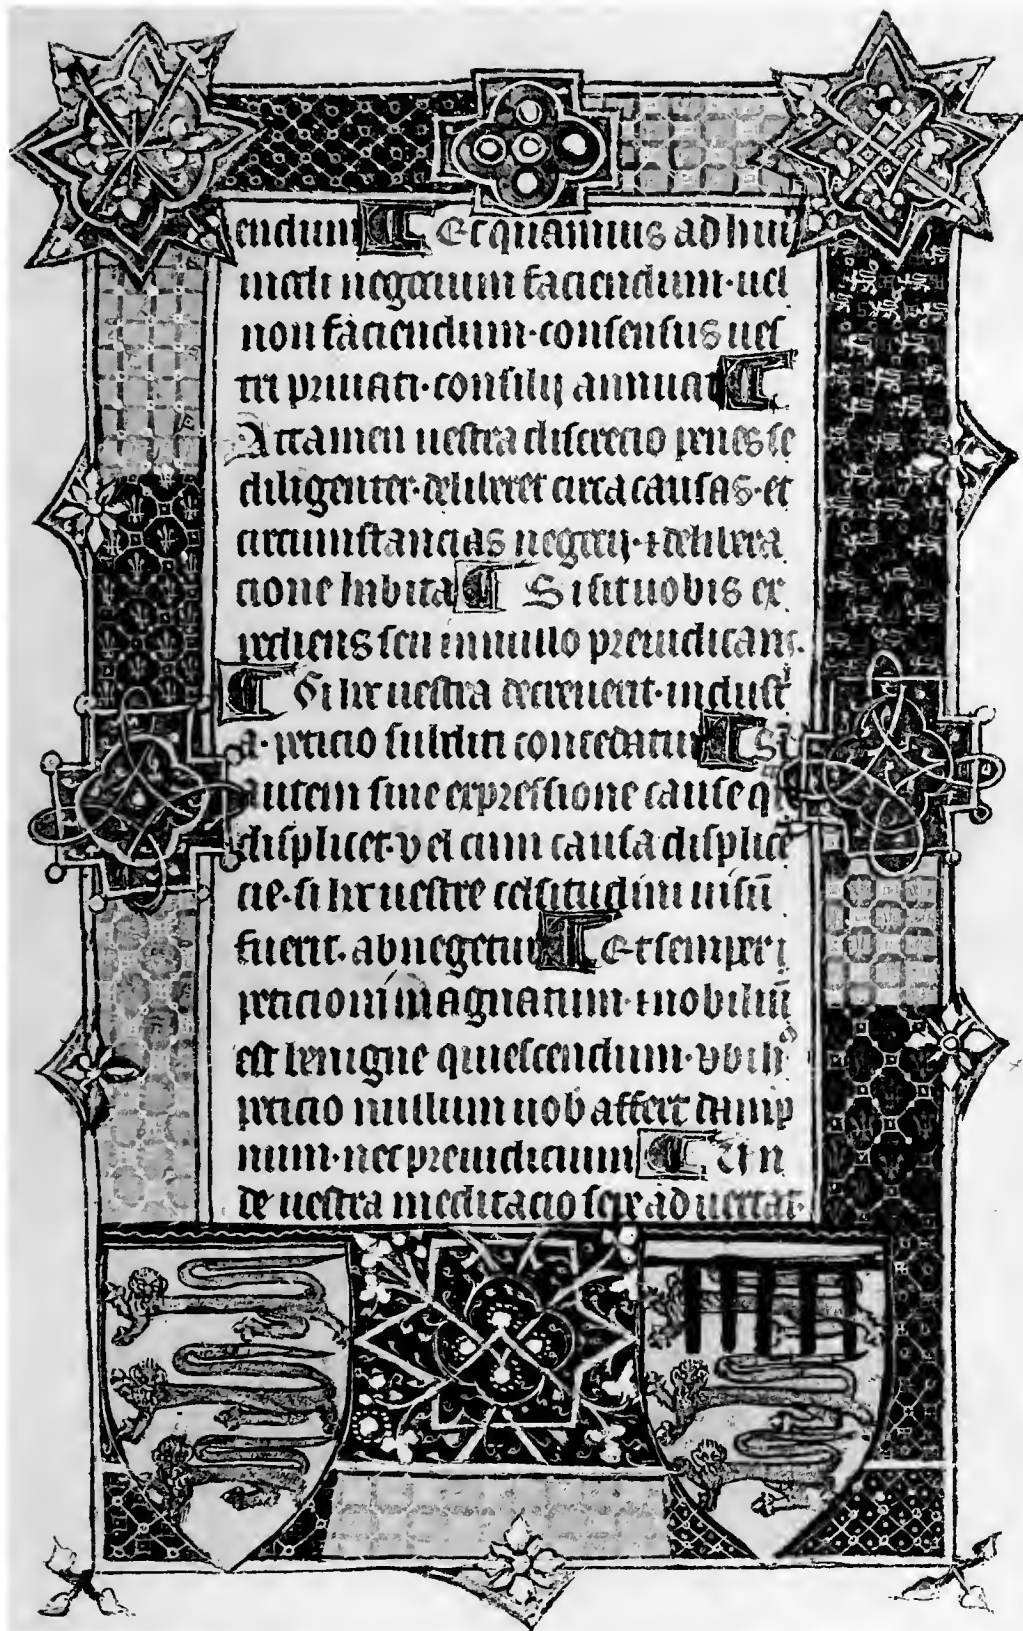 endum Et quamuis ad hui
modi negocium faciendum · uel
non faciendum · consensus ues
tri priuati · consilij annuat
Attamen uestra discrecio penes se
diligenter · deliberet circa causas · et
circumstancias negocij · ⁊ delibera
cione habita Si sit uobis ex
pediens seu in nullo preiudicans ·
Si hec uestra decreuerit · industⁱ
a · peticio subditi concedatur Si
autem sine expressione cause q
displicet · vel cum causa displice
cie · si hec uestre celsitudini uisū
fuerit · abnegetur Et semper
peticioni magnatum · ⁊ nobiliū
est benigne quiescendum · vbi
peticio nullum uob affert damp
num · nec preiudicium Un
de uestra meditacio sepe aduertat ·